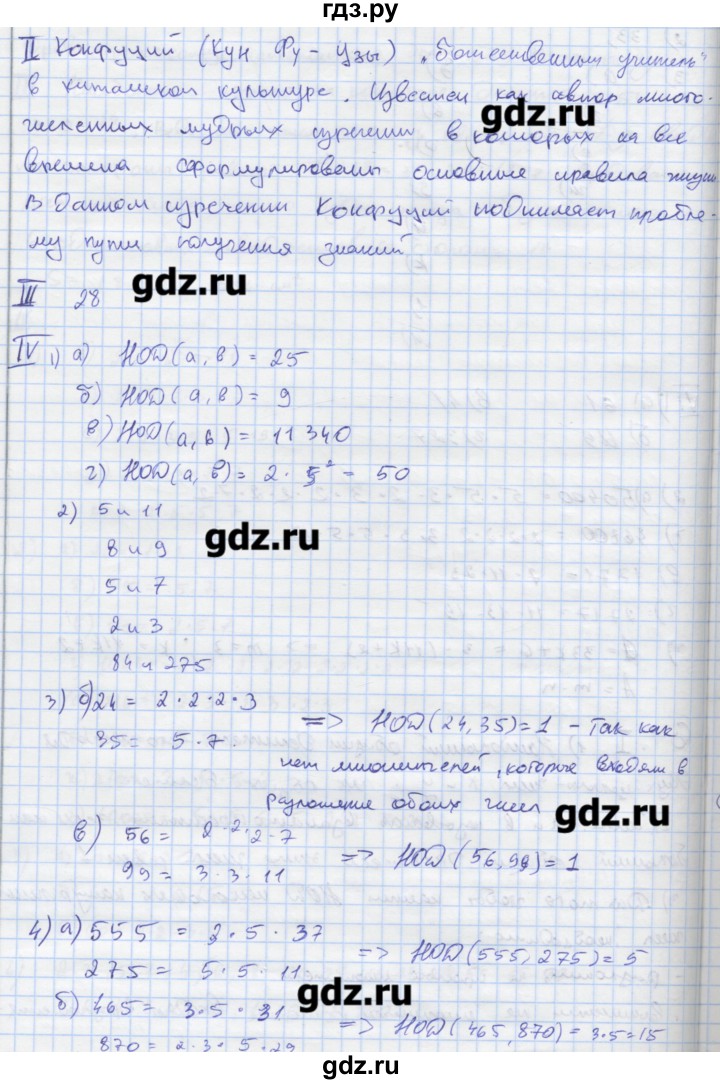 гдз.ру
II Конфуций (Кун Фу-Цзы) „божественный учитель"
в китайской культуре. Известен как автор много-
численных мудрых изречений в которых на все
времена сформулированы основные правила жизни.
В данном изречении Конфуций поднимает пробле-
му пути получения знаний
gdz.ru
gdz.ru
III 28
IV 1) а) НОД(а, в) = 25
б) НОД(а, в) = 9
в) НОД(а, в) = 11340
г) НОД(а, в) = 2 · 5² = 50
2) 5 и 11
8 и 9
gdz.ru
5 и 7
2 и 3
84 и 275
3) б) 24 = 2 · 2 · 2 · 3
35 = 5 · 7
=> НОД(24,35)=1 - так как
нет множителей, которые входят в
разложение обоих чисел
gdz.ru
в) 56 = 2 · 2 · 2 · 7
99 = 3 · 3 · 11
=> НОД(56,99)=1
4) а) 555 = 3 · 5 · 37
275 = 5 · 5 · 11
=> НОД(555, 275) = 5
gdz.ru
б) 465 = 3 · 5 · 31
870 = 2 · 3 · 5 · 29
=> НОД(465,870) = 3·5=15
gdz.ru